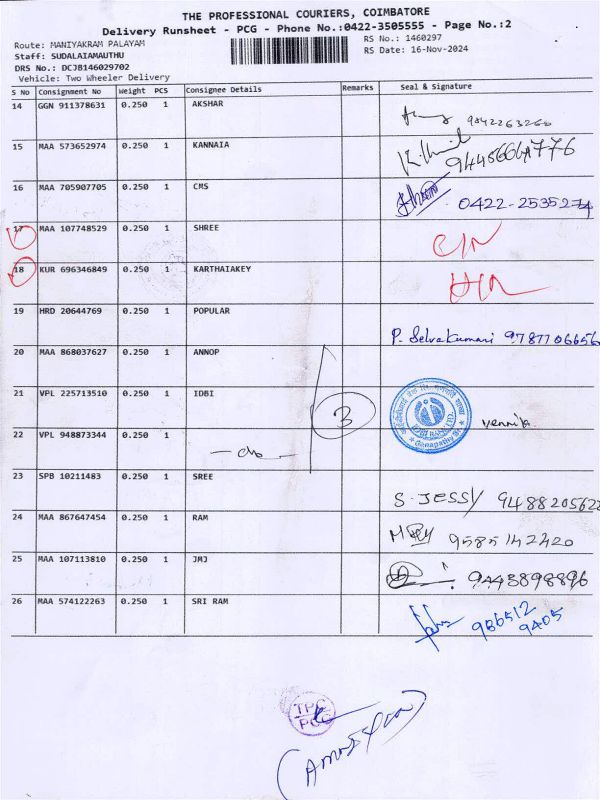 THE PROFESSIONAL COURIERS, COIMBATORE
Delivery Runsheet - PCG - Phone No.:0422-3505555 - Page No.:2
Route: MANIYAKRAM PALAYAM
RS No.: 1460297
Staff: SUDALAIAMAUTHU
RS Date: 16-Nov-2024
DRS No.: DCJB146029702
Vehicle: Two Wheeler Delivery
S No Consignment No Weight PCS Consignee Details Remarks Seal & Signature
14 GGN 911378631 0.250 1 AKSHAR 9842263266
15 MAA 573652974 0.250 1 KANNAIA
16 MAA 705907705 0.250 1 CMS 0422-2535274
17 MAA 107748529 0.250 1 SHREE
18 KUR 696346849 0.250 1 KARTHAIAKEY
19 HRD 20644769 0.250 1 POPULAR P. Selvakumari 9787706656
20 MAA 868037627 0.250 1 ANNOP
21 VPL 225713510 0.250 1 IDBI 3 vennila
22 VPL 948873344 0.250 1 -do-
23 SPB 10211483 0.250 1 SREE S. JESSY 9488205622
24 MAA 867647454 0.250 1 RAM 9585142420
25 MAA 107113810 0.250 1 JMJ 9443898896
26 MAA 574122263 0.250 1 SRI RAM 986512
9405
TPC
PCG